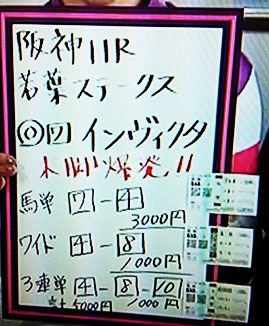 阪神11R
若葉ステークス
◎⑦インヴィクタ
末脚爆発!!
馬単 7-4
3000円
ワイド 4-8
1000円
3連単 4-8-10
計5000円 1000円